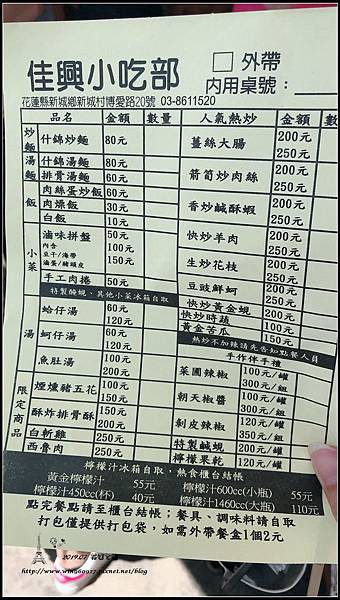 佳興小吃部
□ 外帶
內用桌號：
花蓮縣新城鄉新城村博愛路20號 03-8611520
品名 金額 數量
炒麵 什錦炒麵 80元
湯麵 什錦湯麵 80元
排骨湯麵 60元
飯 肉絲蛋炒飯 60元
肉燥飯 30元
白飯 10元
小菜 滷味拼盤 50元
內含 100元
豆干/海帶
滷蛋/豬頭皮 150元
手工肉捲 50元
特製醃蜆、其他小菜冰箱自取
湯 蛤仔湯 60元
120元
蚵仔湯 60元
120元
魚肚湯 100元
200元
限定商品 煙燻豬五花 100元
150元
酥炸排骨酥 150元
200元
白斬雞 250元
西魯肉 250元
人氣熱炒 金額 數
薑絲大腸 200元
250元
箭筍炒肉絲 200元
250元
香炒鹹酥蝦 200元
250元
快炒羊肉 200元
250元
生炒花枝 200元
250元
豆豉鮮蚵 200元
250元
快炒黃金蜆 200元
快炒時蔬 100元
黃金苦瓜 150元
熱炒不加辣請先告知點餐人員
手作伴手禮
菜圃辣椒 100元/罐
300元/組
朝天椒醬 100元/罐
300元/組
剝皮辣椒 120元/罐
350元/組
特製鹹蜆 200元/罐
檸檬果乾 120元/罐
檸檬汁冰箱自取，熱食櫃台結帳
黃金檸檬汁 55元 檸檬汁600cc(小瓶) 55元
檸檬汁450cc(杯) 40元 檸檬汁1460cc(大瓶) 110元
點完餐點請至櫃台結帳；餐具、調味料請自取
打包僅提供打包袋，如需外帶餐盒1個2元
2019.07
http://www.win969927.pixnet.net/blog